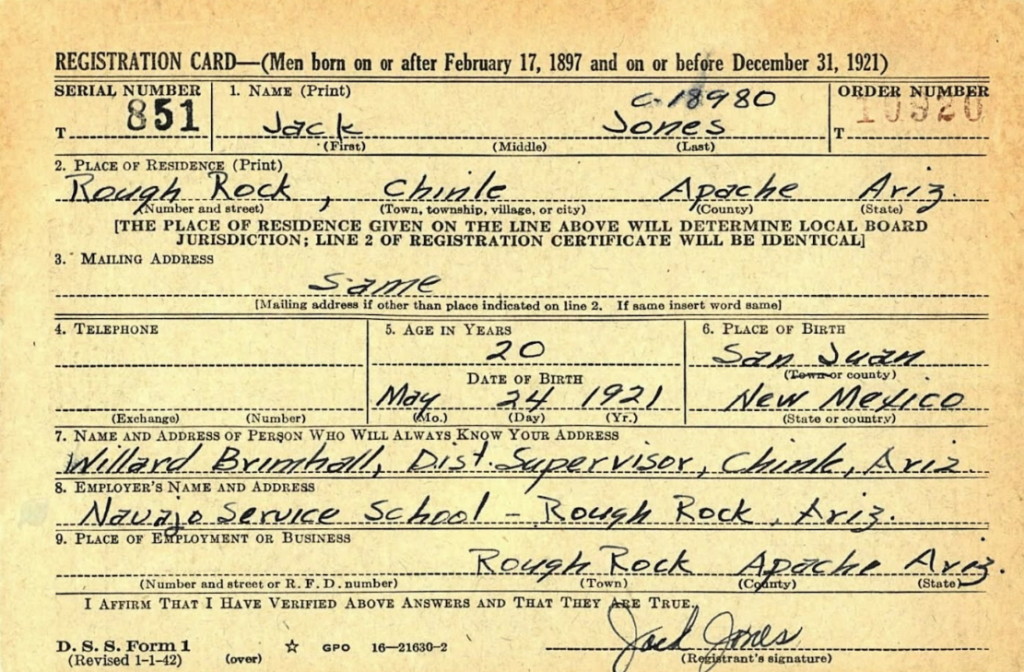 REGISTRATION CARD—(Men born on or after February 17, 1897 and on or before December 31, 1921)
SERIAL NUMBER 1. NAME (Print) C-18980 ORDER NUMBER
T 851 Jack Jones T 10920
(First) (Middle) (Last)
2. PLACE OF RESIDENCE (Print)
Rough Rock, Chinle Apache Ariz.
(Number and street) (Town, township, village, or city) (County) (State)
[THE PLACE OF RESIDENCE GIVEN ON THE LINE ABOVE WILL DETERMINE LOCAL BOARD
JURISDICTION; LINE 2 OF REGISTRATION CERTIFICATE WILL BE IDENTICAL]
3. MAILING ADDRESS
Same
[Mailing address if other than place indicated on line 2. If same insert word same]
4. TELEPHONE 5. AGE IN YEARS 6. PLACE OF BIRTH
20 San Juan
(Town or county)
DATE OF BIRTH
May 24 1921 New Mexico
(Exchange) (Number) (Mo.) (Day) (Yr.) (State or country)
7. NAME AND ADDRESS OF PERSON WHO WILL ALWAYS KNOW YOUR ADDRESS
Willard Brimhall, Dist. Supervisor, Chinle, Ariz.
8. EMPLOYER'S NAME AND ADDRESS
Navajo Service School - Rough Rock, Ariz.
9. PLACE OF EMPLOYMENT OR BUSINESS
Rough Rock Apache Ariz.
(Number and street or R. F. D. number) (Town) (County) (State)
I AFFIRM THAT I HAVE VERIFIED ABOVE ANSWERS AND THAT THEY ARE TRUE.
Jack Jones
D. S. S. Form 1 ☆ GPO 16—21630-2
(Revised 1-1-42) (over) (Registrant's signature)